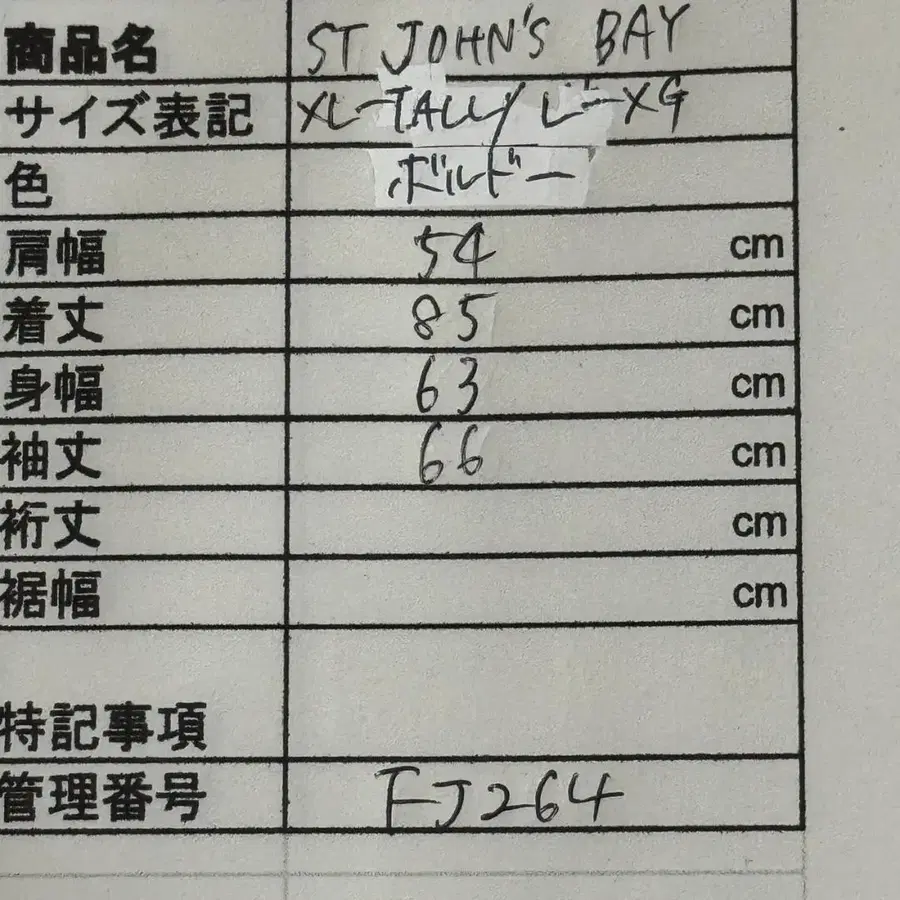 商品名 ST JOHN'S BAY
サイズ表記 XL-TALL/ XG
色 ボルドー
肩幅 54 cm
着丈 85 cm
身幅 63 cm
袖丈 66 cm
裄丈 cm
裾幅 cm
特記事項
管理番号 FJ264